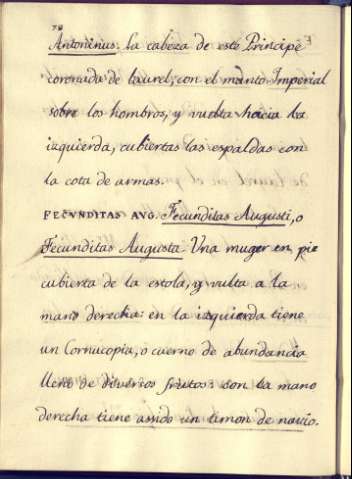 78
Antoninus: la cabeza de este Principe
coronada de laurel, con el manto Imperial
sobre los hombros, y vuelta hacia la
izquierda, cubiertas las espaldas con
la cota de armas.
FECVNDITAS AVG. Fecunditas Augusti, o
Fecunditas Augusta. Una muger en pie
cubierta de la estola, y vulta a la
mano derecha: en la izquierda tiene
un Cornucopia, o cuerno de abundancia
lleno de diversos frutos: con la mano
derecha tiene assido un timon de navio.